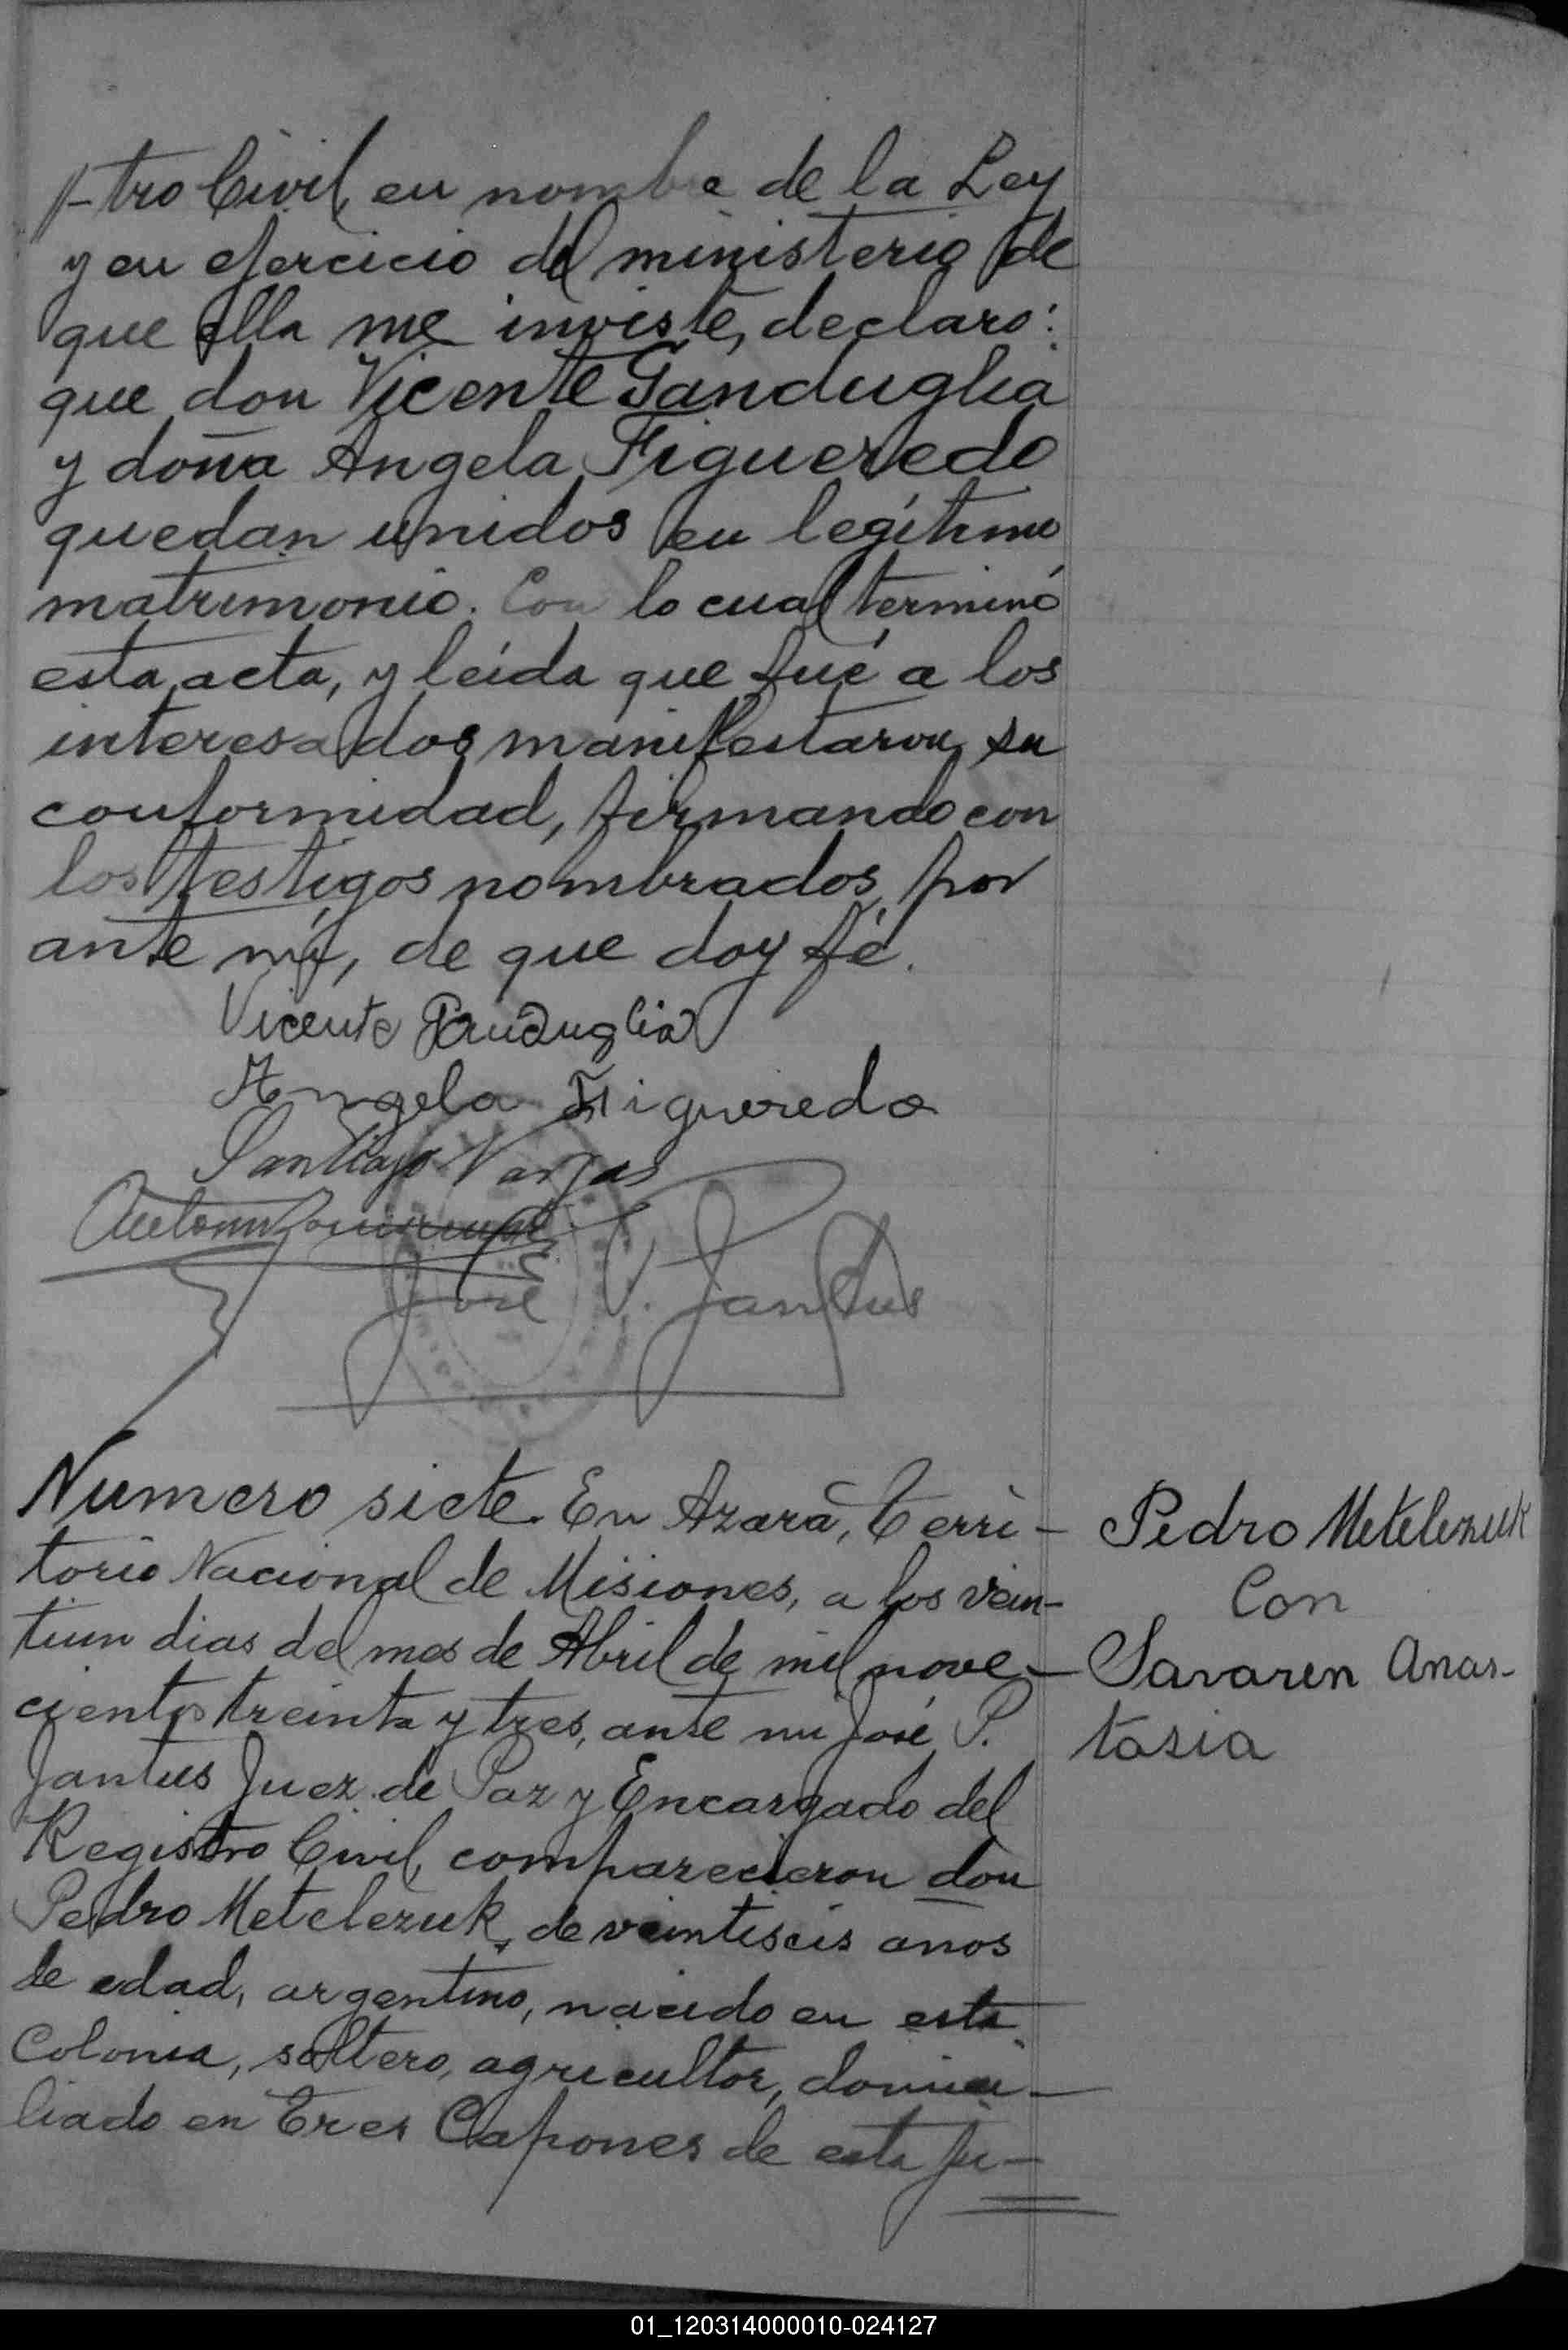 //-tro Civil, en nombre de la Ley
y en ejercicio del ministerio de
que ella me inviste, declaro:
que don Vicente Ganduglia
y doña Angela Figueredo
quedan unidos en legítimo
matrimonio. Con lo cual terminó
esta acta, y leída que fué a los
interesados manifestaron su
conformidad, firmando con
los testigos nombrados, por
ante mí, de que doy fé.
Vicente Ganduglia
Angela Figueredo
Santiago Vargas
José P. Jantus
Numero siete. En Azara, Terri-
torio Nacional de Misiones, a los vein-
tiun dias del mes de Abril de mil nove-
cientos treinta y tres, ante mi José P.
Jantus Juez de Paz y Encargado del
Registro Civil, comparecieron don
Pedro Metelezuk, de veintiseis anos
de edad, argentino, nacido en esta
Colonia, soltero, agricultor, domici-
liado en Tres Capones de esta ju-
Pedro Metelezuk
Con
Savaren Anas-
tasia
01_120314000010-024127